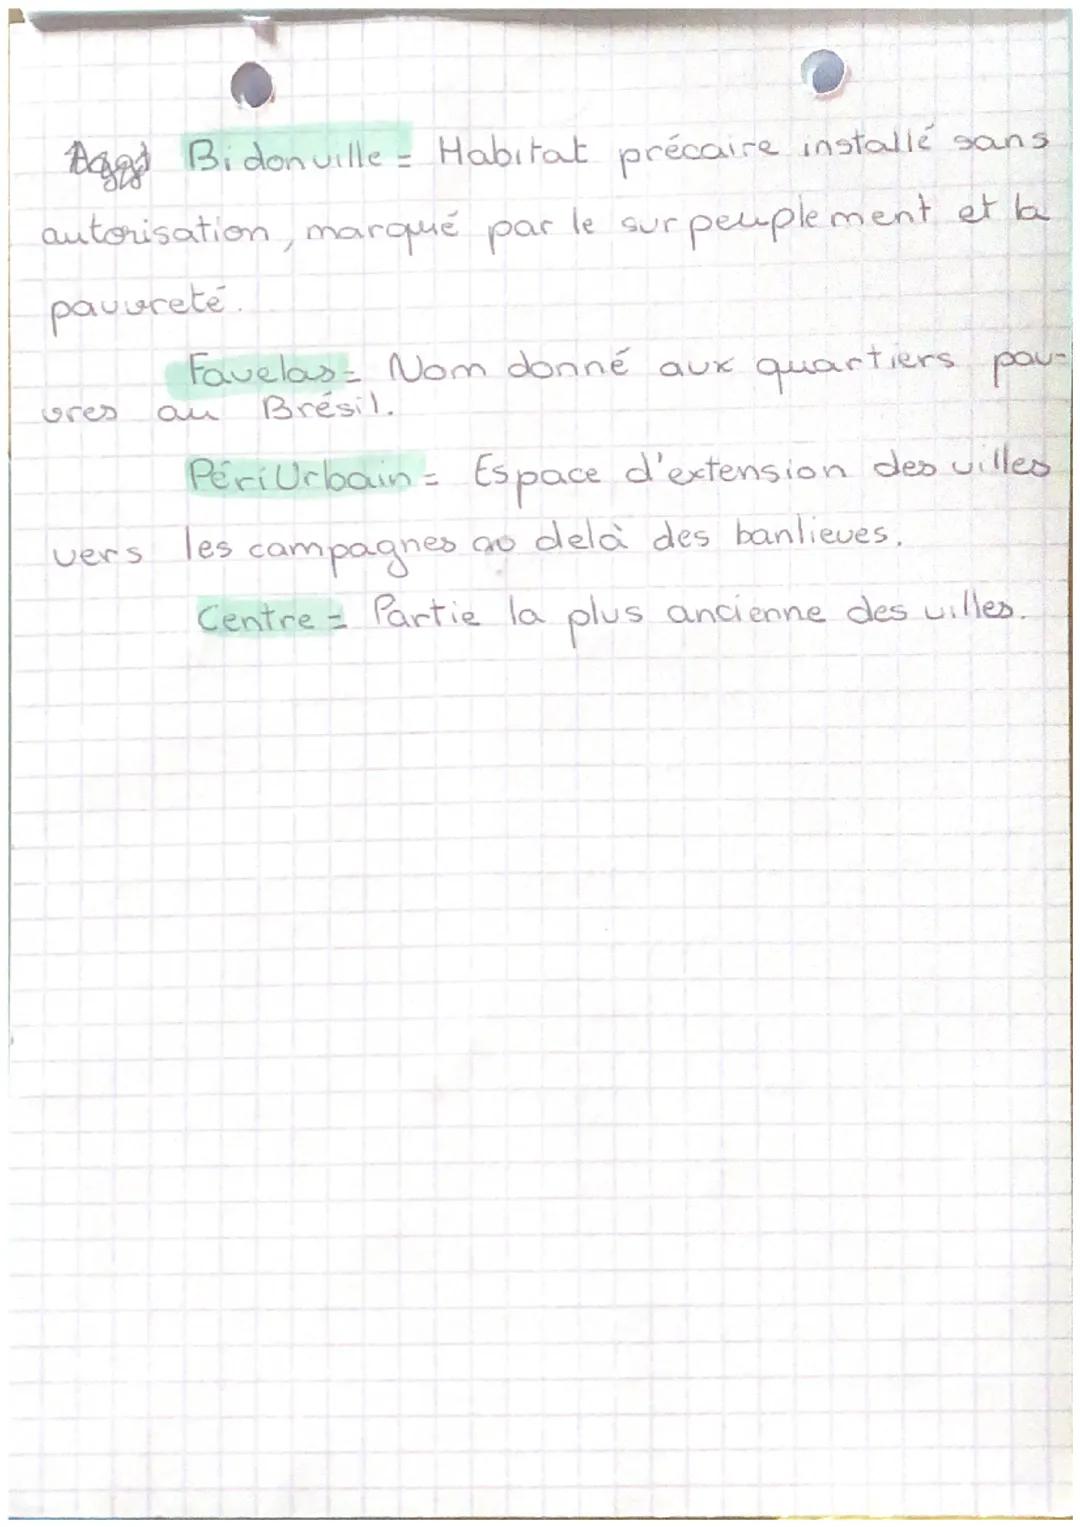 Bidonville = Habitat précaire installé sans
autorisation, marqué par le surpeuplement et la
pauvreté.
Favelas = Nom donné aux quartiers pau-
vres au Brésil.
PériUrbain = Espace d'extension des villes
vers les campagnes au delà des banlieues.
Centre = Partie la plus ancienne des villes.